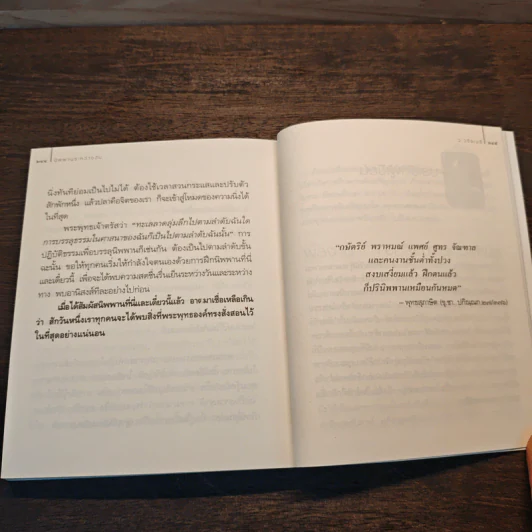 นิ่งทันทีย่อมเป็นไปไม่ได้ ต้องใช้เวลาสวนกระแสและปรับตัว
สักพักหนึ่ง แล้วปลาคือจิตของเรา ก็จะเข้าสู่โหมดของความนิ่งได้
ในที่สุด
พระพุทธเจ้าตรัสว่า “ทะเลลาดลุ่มลึกไปตามลำดับฉันใด
การบรรลุธรรมในศาสนาของฉันก็เป็นไปตามลำดับฉันนั้น” การ
ปฏิบัติธรรมเพื่อบรรลุนิพพานก็เช่นกัน ต้องเป็นไปตามลำดับขั้น
ฉะนั้น ขอให้ทุกคนเริ่มให้กำลังใจตนเองด้วยการฝึกนิพพานที่นี่
และเดี๋ยวนี้ เพื่อจะได้พบความสดชื่นรื่นเย็นระหว่างวันและระหว่าง
ทาง พบอานิสงส์ทีละอย่างไปก่อน
เมื่อได้สัมผัสนิพพานที่นี่และเดี๋ยวนี้แล้ว อาตมาเชื่อเหลือเกิน
ว่า สักวันหนึ่งเราทุกคนจะได้พบสิ่งที่พระพุทธองค์ทรงสั่งสอนไว้
ในที่สุดอย่างแน่นอน
“กษัตริย์ พราหมณ์ แพศย์ ศูทร จัณฑาล
และคนงานชั้นต่ำทั้งปวง
สงบเสงี่ยมแล้ว ฝึกตนแล้ว
ก็ปรินิพพานเหมือนกันหมด”
– พุทธสุภาษิต